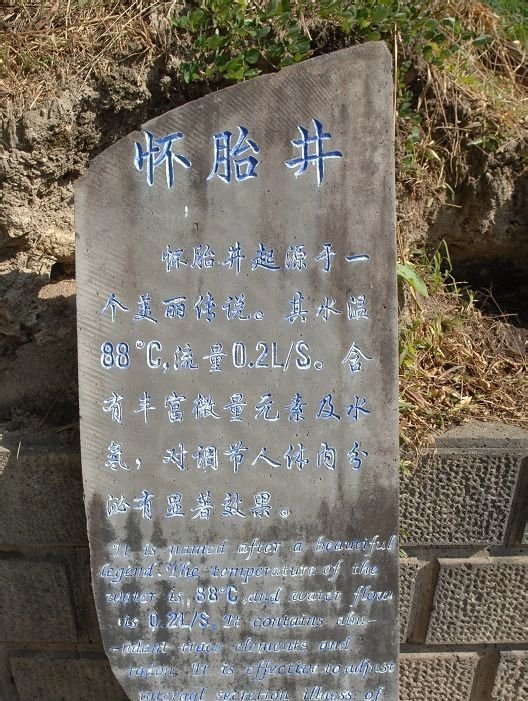 怀胎井
怀胎井起源于一
个美丽传说。其水温
88°C,流量0.2L/S。含
有丰富微量元素及水
氡，对调节人体内分
泌有显著效果。
It is named after a beautiful
legend. The temperature of the
water is 88°C, and water flow
is 0.2L/S. It contains abu-
-ndent trace elements and
radon. It is effective to adjust
internal secretion illness of